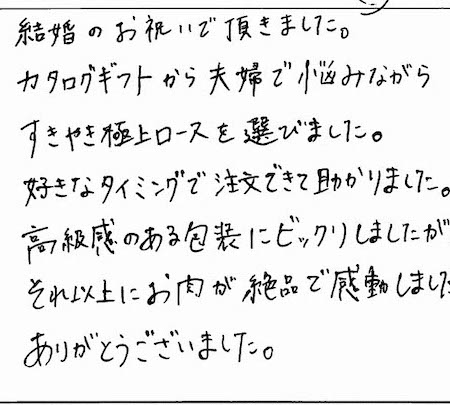 結婚のお祝いで頂きました。
カタログギフトから夫婦で悩みながら
すきやき極上ロースを選びました。
好きなタイミングで注文できて助かりました。
高級感のある包装にビックリしましたが
それ以上にお肉が絶品で感動しました
ありがとうございました。